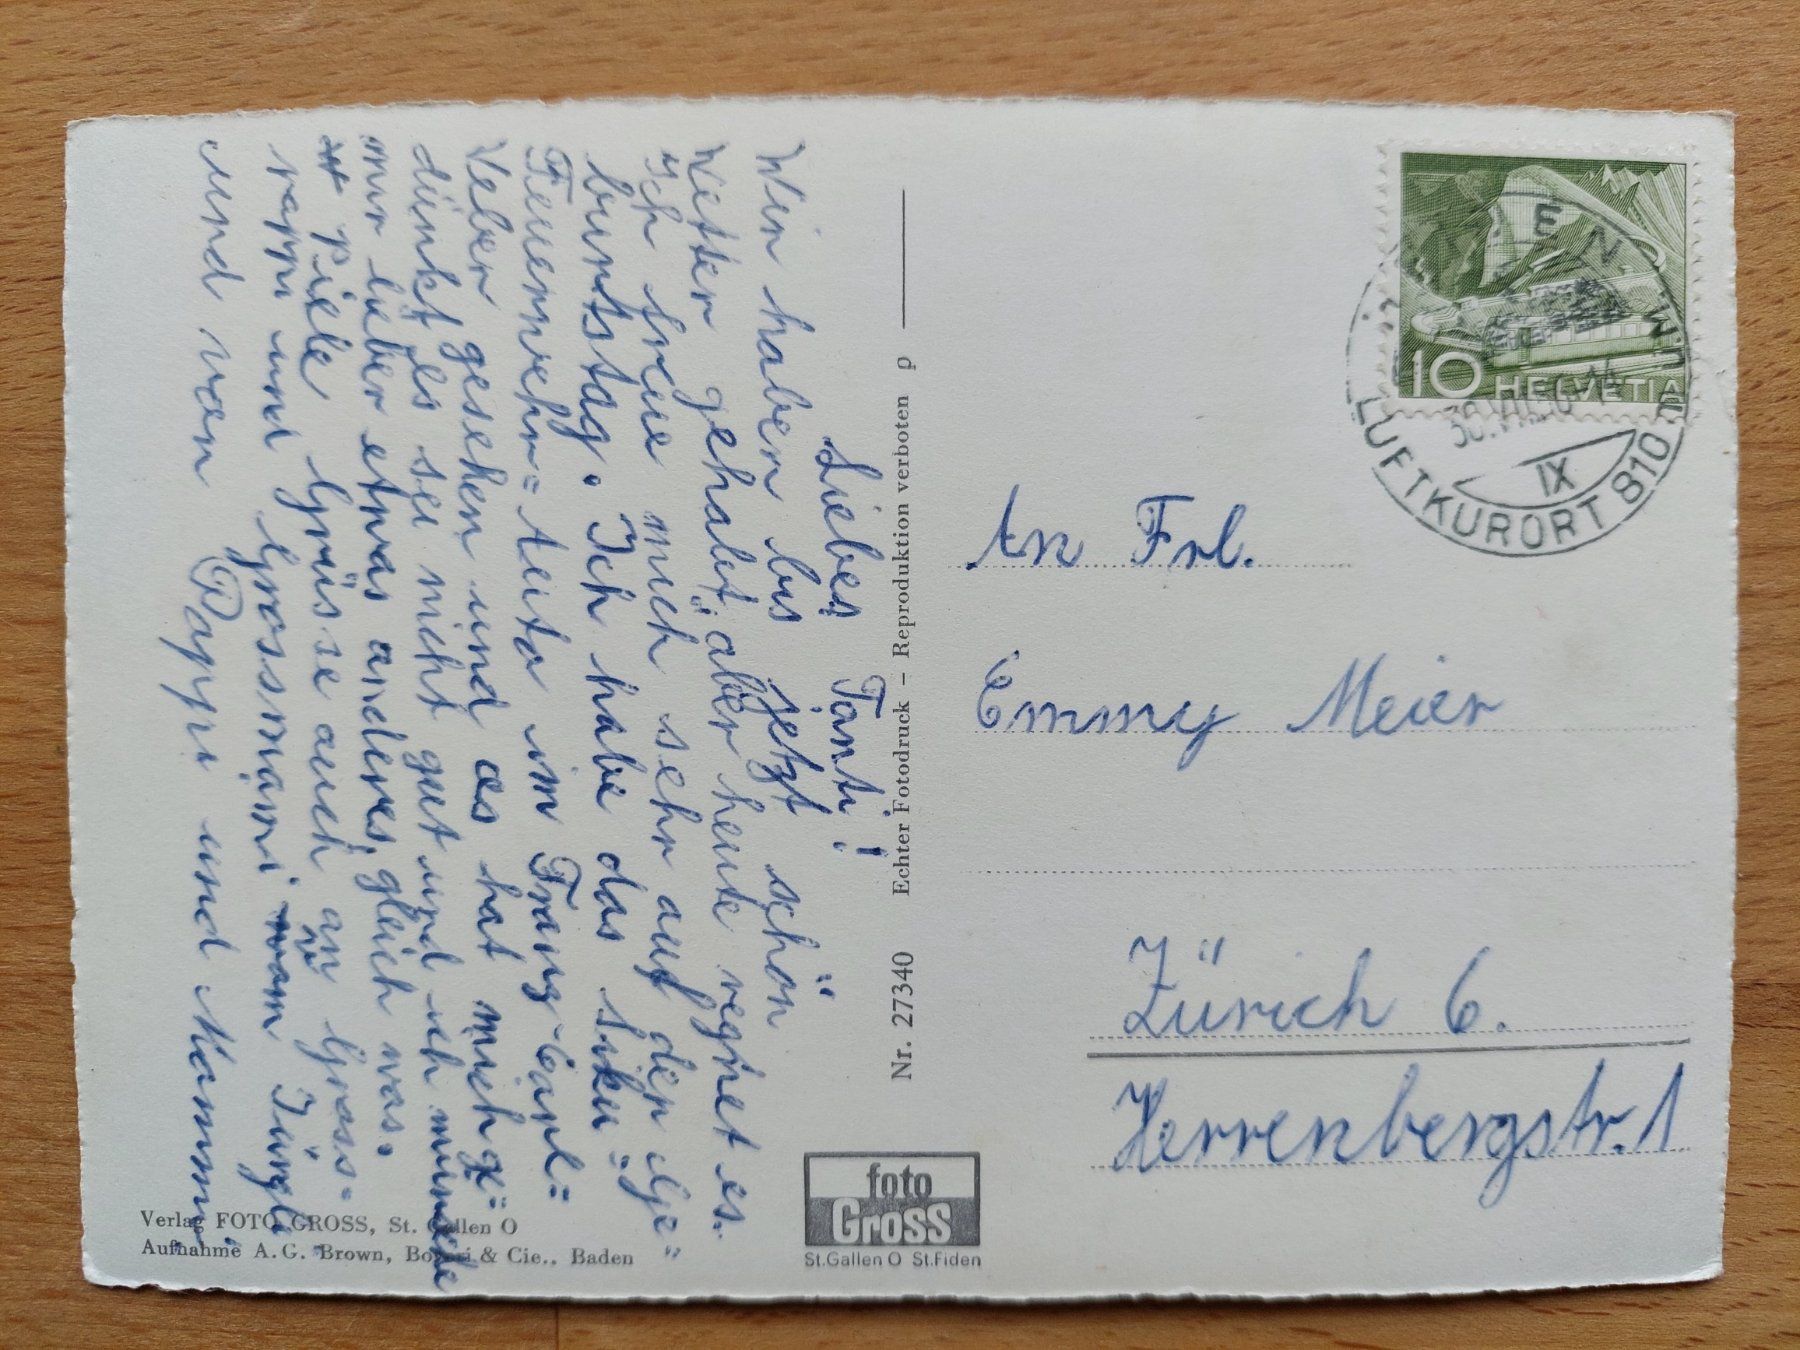 Liebes Tanti!
Wir haben bis jetzt schön
Wetter gehabt, aber heute regnet es.
Ich freue mich sehr auf den Ge=
burtstag. Ich habe das Siku=
Feuerwehr=Auto im Franz-Carl=
Weber gesehen und es hat mich ge=
dünkt es sei nicht gut und ich müsste
mir lieber etwas anderes, gleich was.
Viele Grüsse auch an Gross=
pappi und Grossmami vom Jürgli
und von Pappi und Mammi.
Nr. 27340 Echter Fotodruck – Reproduktion verboten p
10 HELVETIA
LUFTKURORT 810 m
IX
An Frl.
Emmy Meier
Zürich 6.
Herrenbergstr. 1
foto
GROSS
St.Gallen O St.Fiden
Verlag FOTO GROSS, St. Gallen O
Aufnahme A.G. Brown, Boveri & Cie., Baden